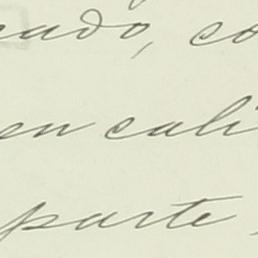 cado, co
en cali
parte,